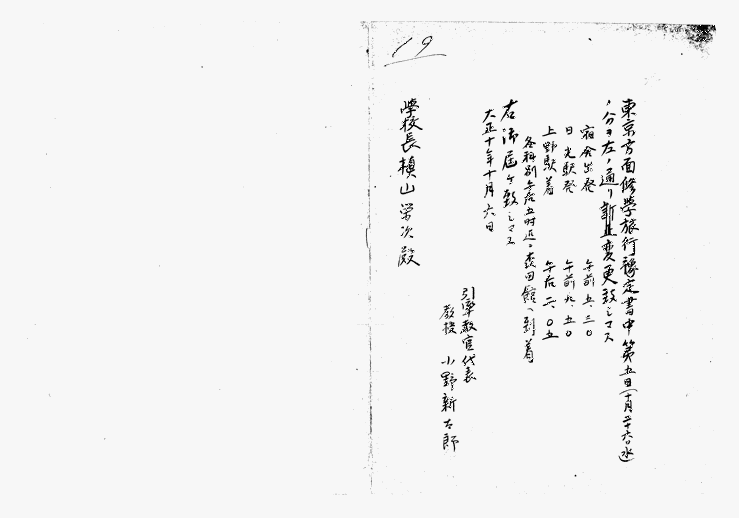 19
東京方面修學旅行豫定書中第五日(十月二十六日水)
ノ分ヲ左ノ通リ訂正変更致シマス
宿舎出発 午前五、三〇
日光駅発 午前九、五〇
上野駅着 午后二、〇五
各科別午后五時迄ニ森田館ヘ到着
右御届ケ致シマス
大正十年十月六日
引率教官代表
教授 小野新太郎
學校長槇山栄次殿